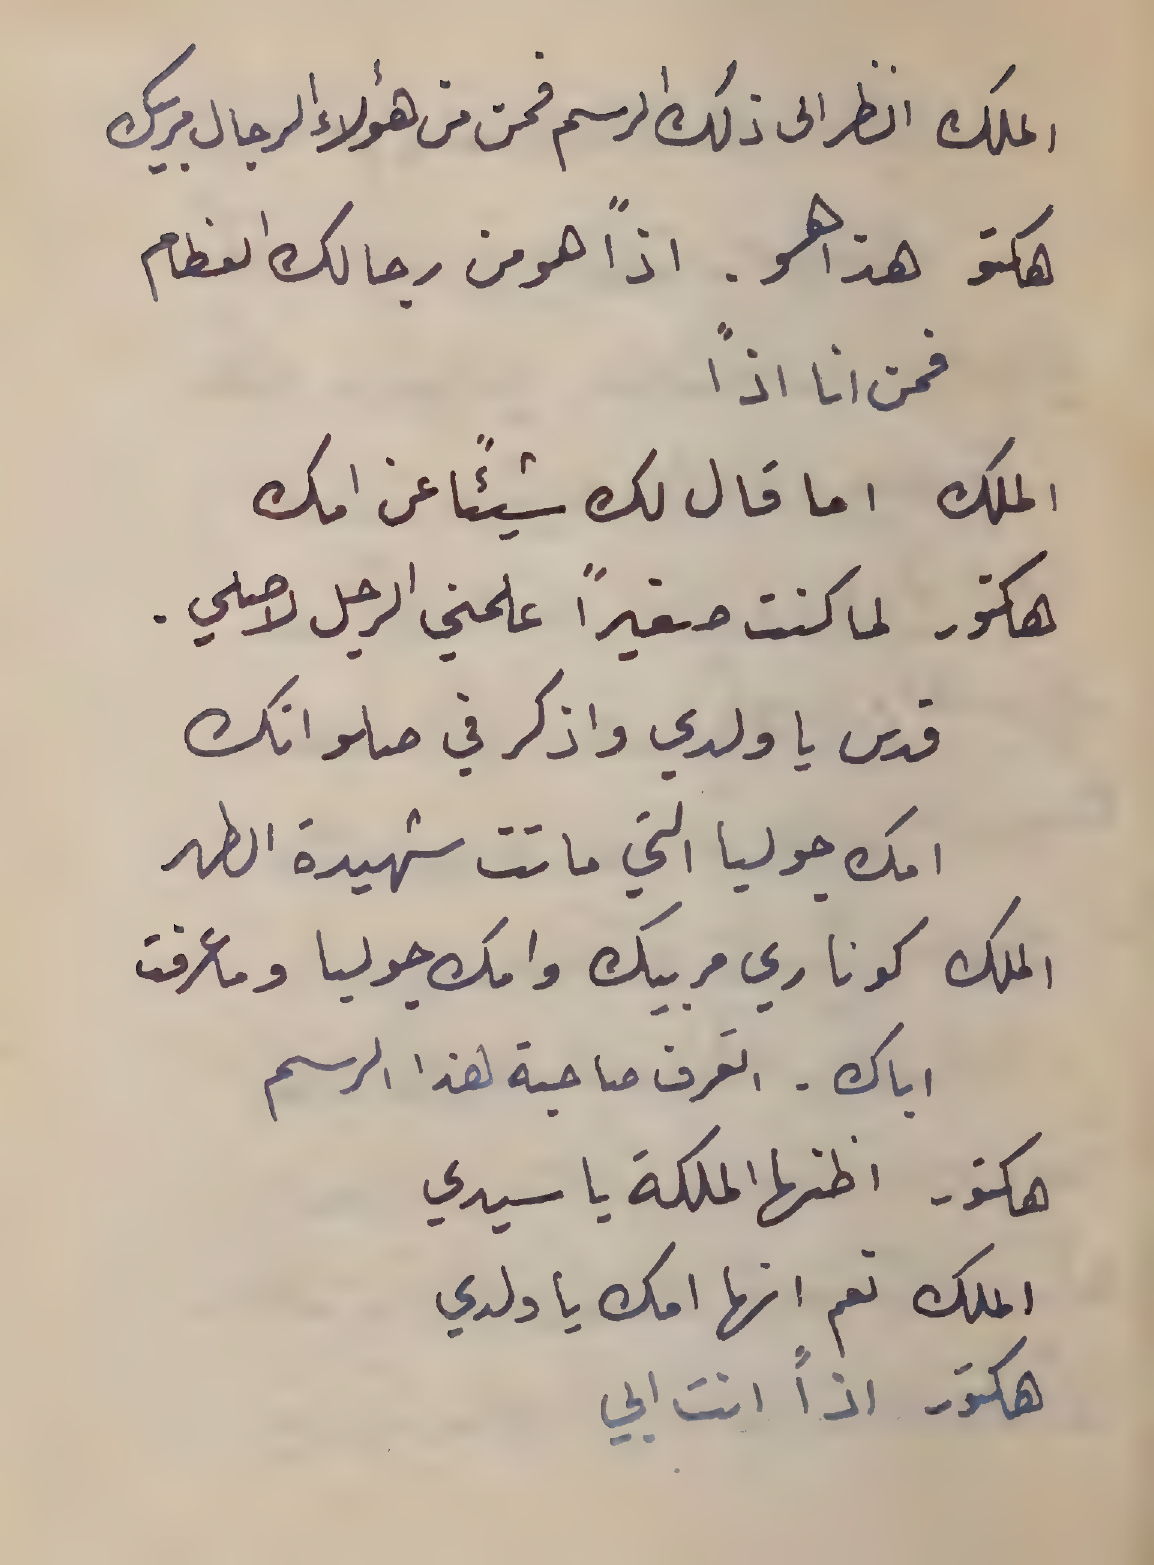 الملك انظر الى ذلك الرسم فمن من هؤلاء الرجال مربيك
هكتو هذا هو . اذاً هو من رجالك العظام
فمن انا اذاً
الملك اما قال لك شيئًا عن امك
هكتور لما كنت صغيراً علمني الرجل لاصلي .
قدس يا ولدي واذكر في صلواتك
امك جوليا التي ماتت شهيدة الطهر
الملك كوناري مربيك وامك جوليا وما عرفت
اباك . اتعرف صاحبة هذا الرسم
هكتور اظنها الملكة يا سيدي
الملك نعم انها امك يا ولدي
هكتور اذاً انت ابي